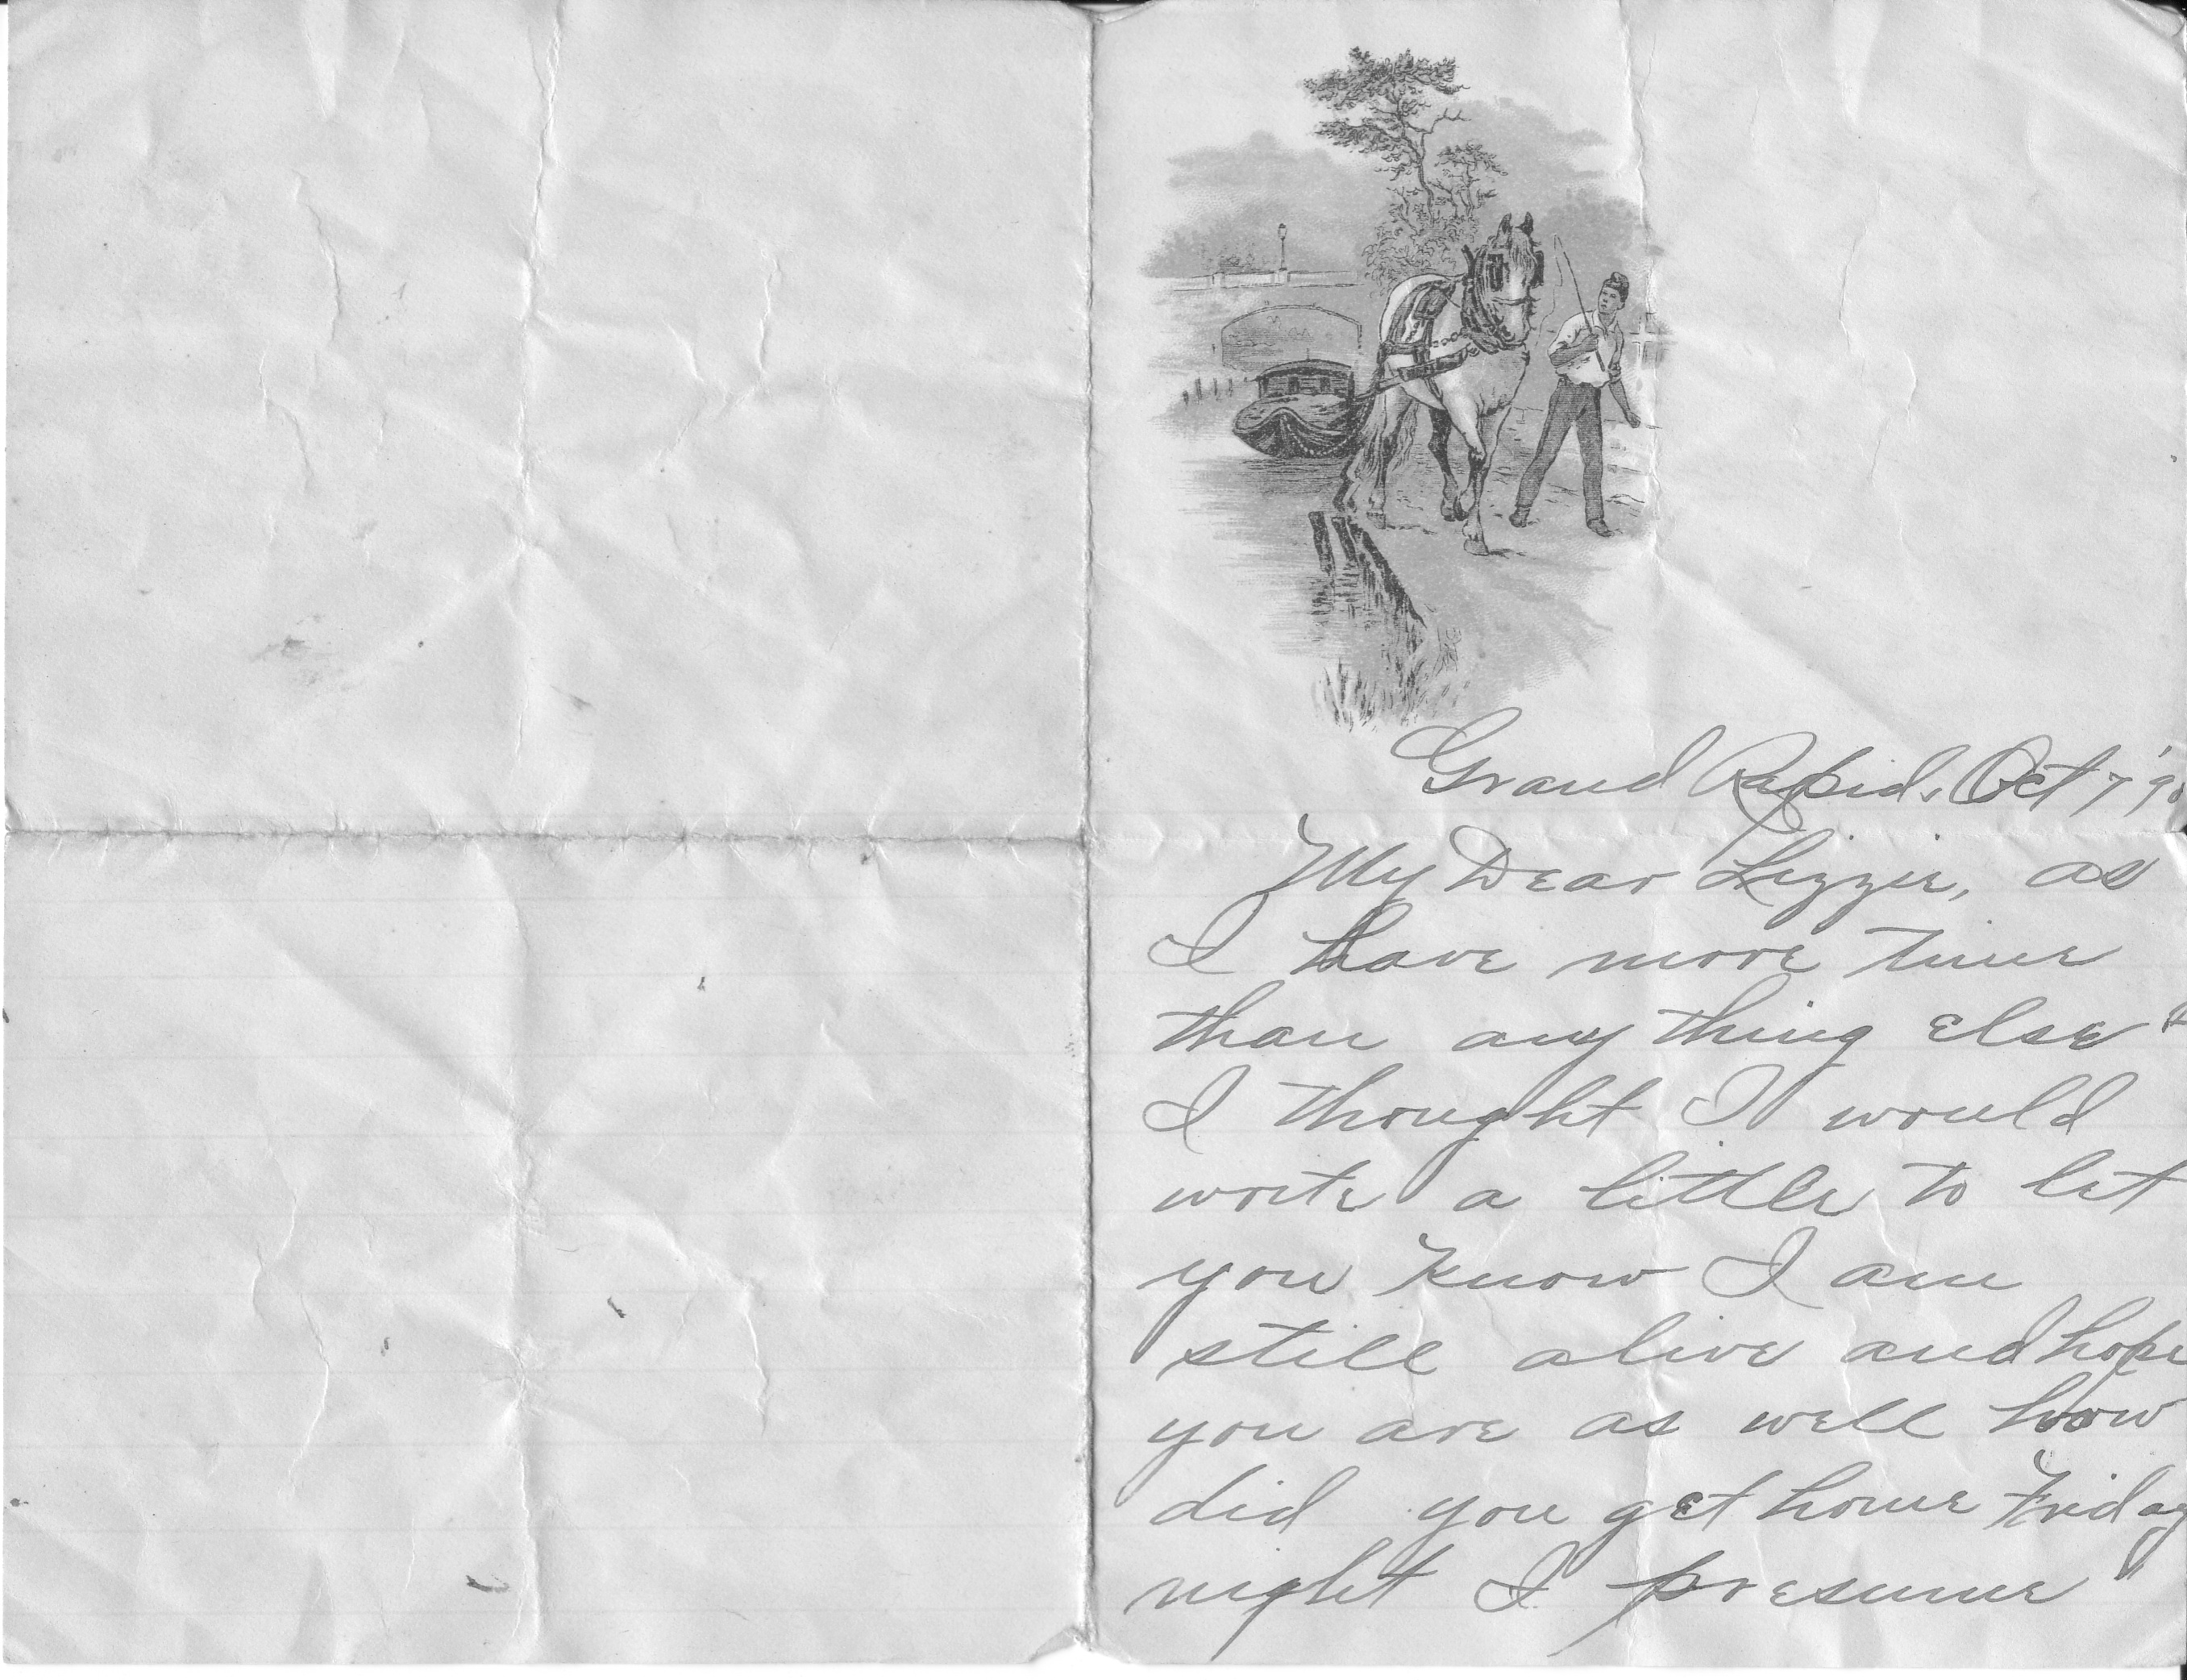 Grand Rapids, Oct 7 '90
My Dear Lizzie, as
I have more time
than any thing else &
I thought I would
write a little to let
you know I am
still alive and hope
you are as well how
did you get home Friday
night I presume